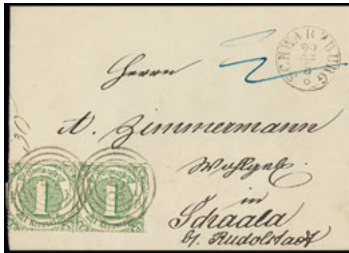 SCHWARZBURG
Herrn
A. Zimmermann
Wohlgeb.
in
Schaala
b/ Rudolstadt
1
1